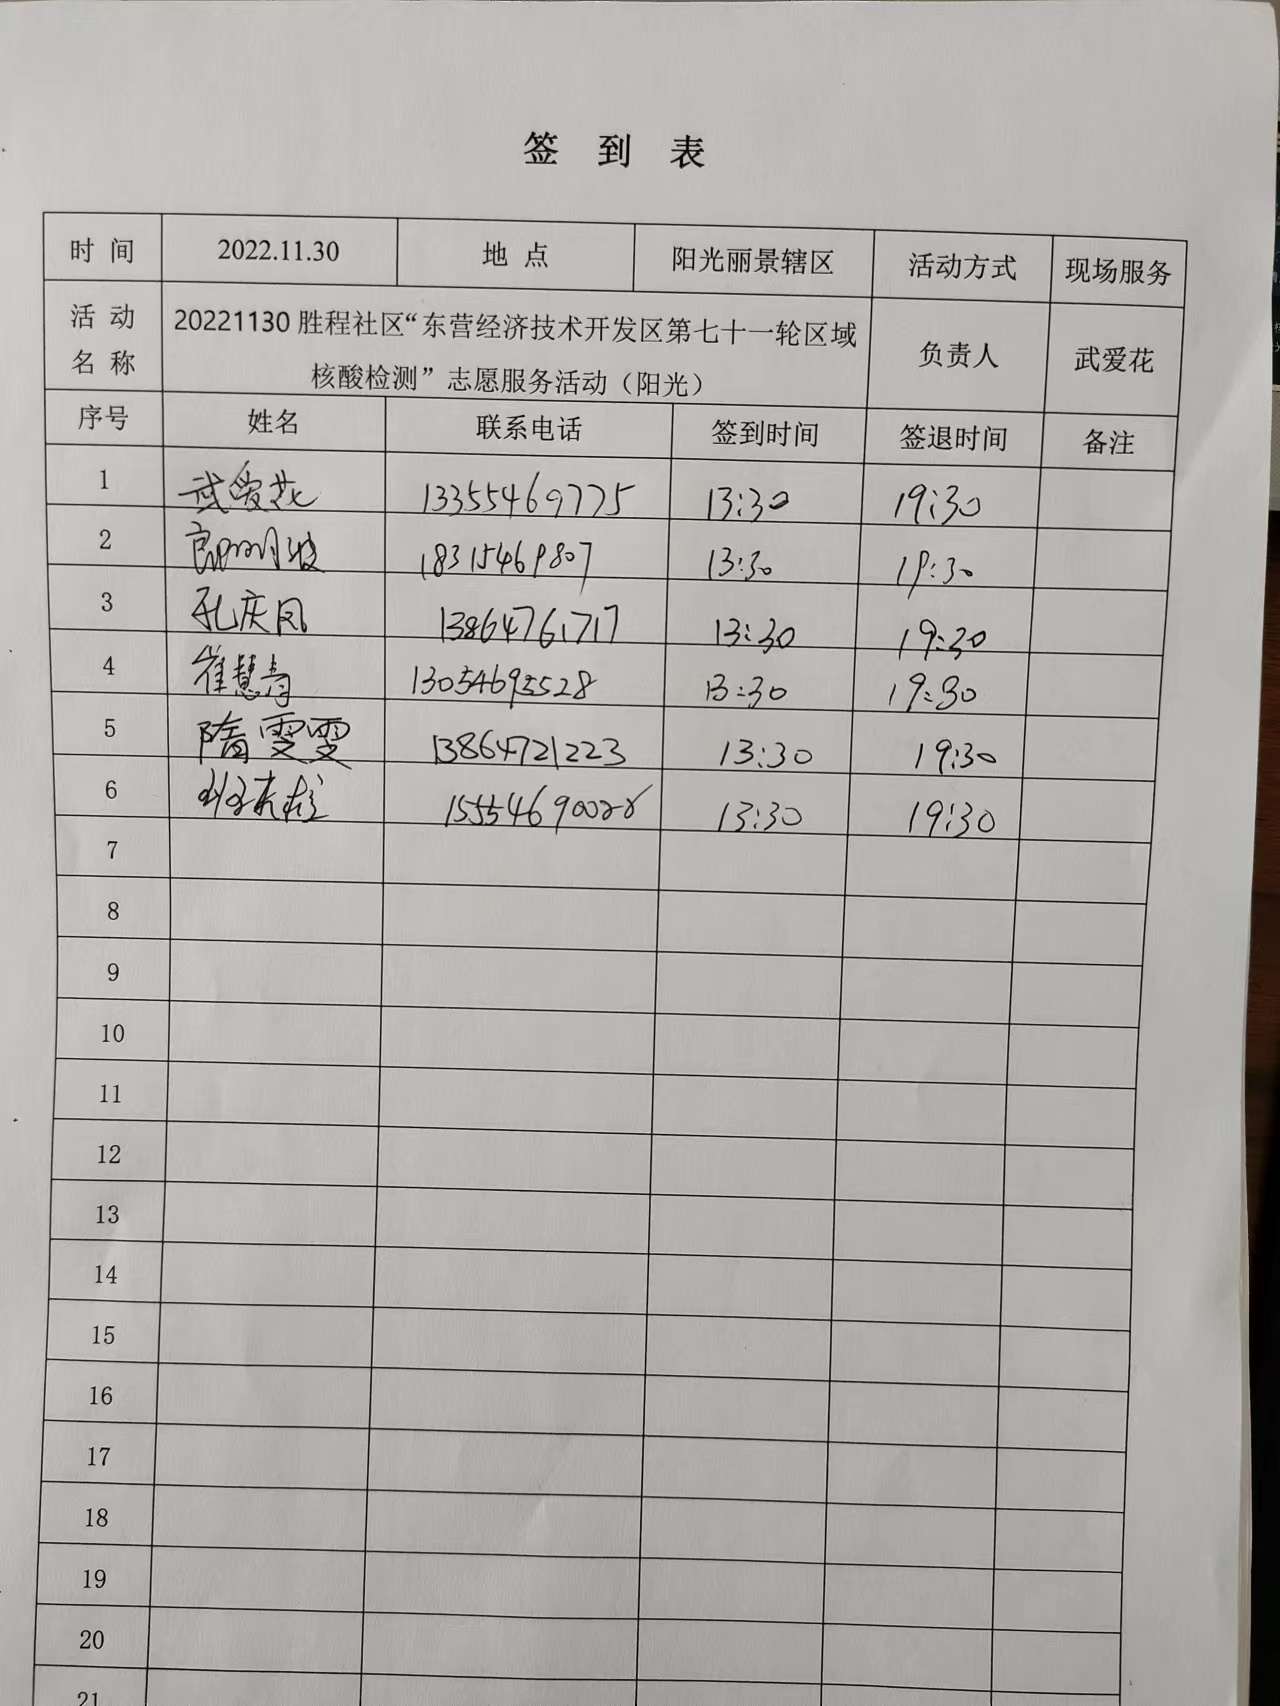 签 到 表
时 间 2022.11.30 地 点 阳光丽景辖区 活动方式 现场服务
活 动 名 称 20221130 胜程社区“东营经济技术开发区第七十一轮区域
核酸检测”志愿服务活动（阳光） 负责人 武爱花
序号 姓名 联系电话 签到时间 签退时间 备注
1 武爱花 13355469775 13:30 19:30
2 18315469807 13:30 19:30
3 孔庆凤 13864761717 13:30 19:30
4 崔慧青 13054695528 13:30 19:30
5 隋雯雯 13864721223 13:30 19:30
6 13:30 19:30
7
8
9
10
11
12
13
14
15
16
17
18
19
20
21